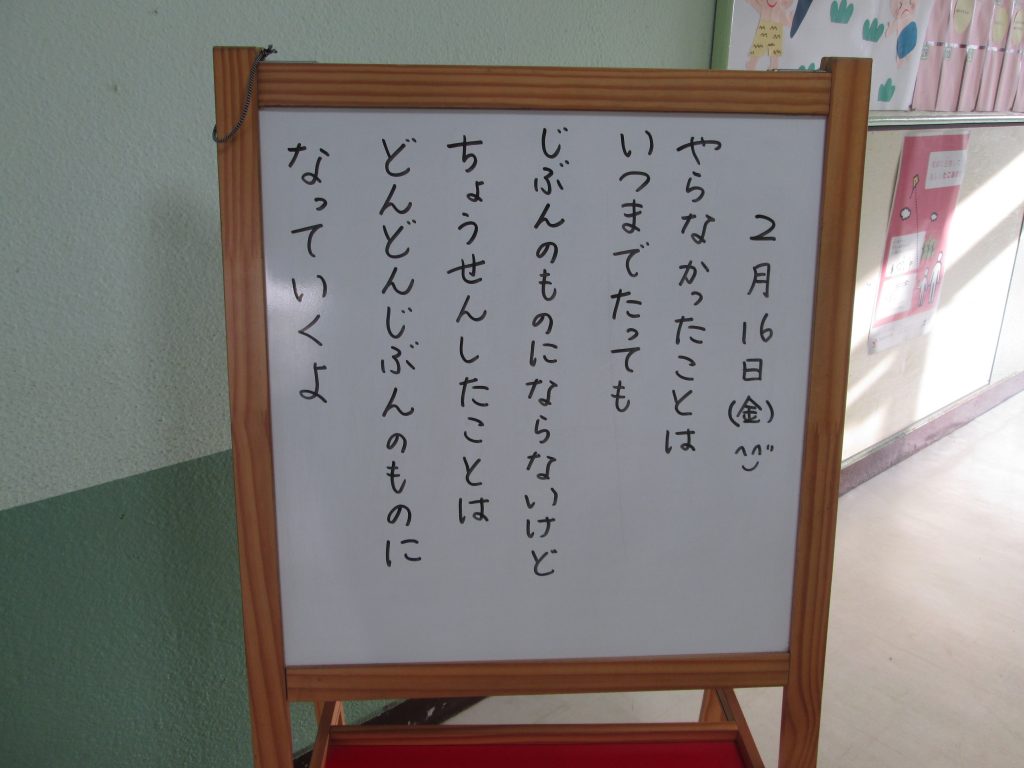 2月16日(金)^^
やらなかったことは
いつまでたっても
じぶんのものにならないけど
ちょうせんしたことは
どんどんじぶんのものに
なっていくよ